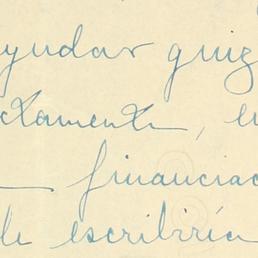 ayudar quiz
ctamente, en
financiac
le escribiría